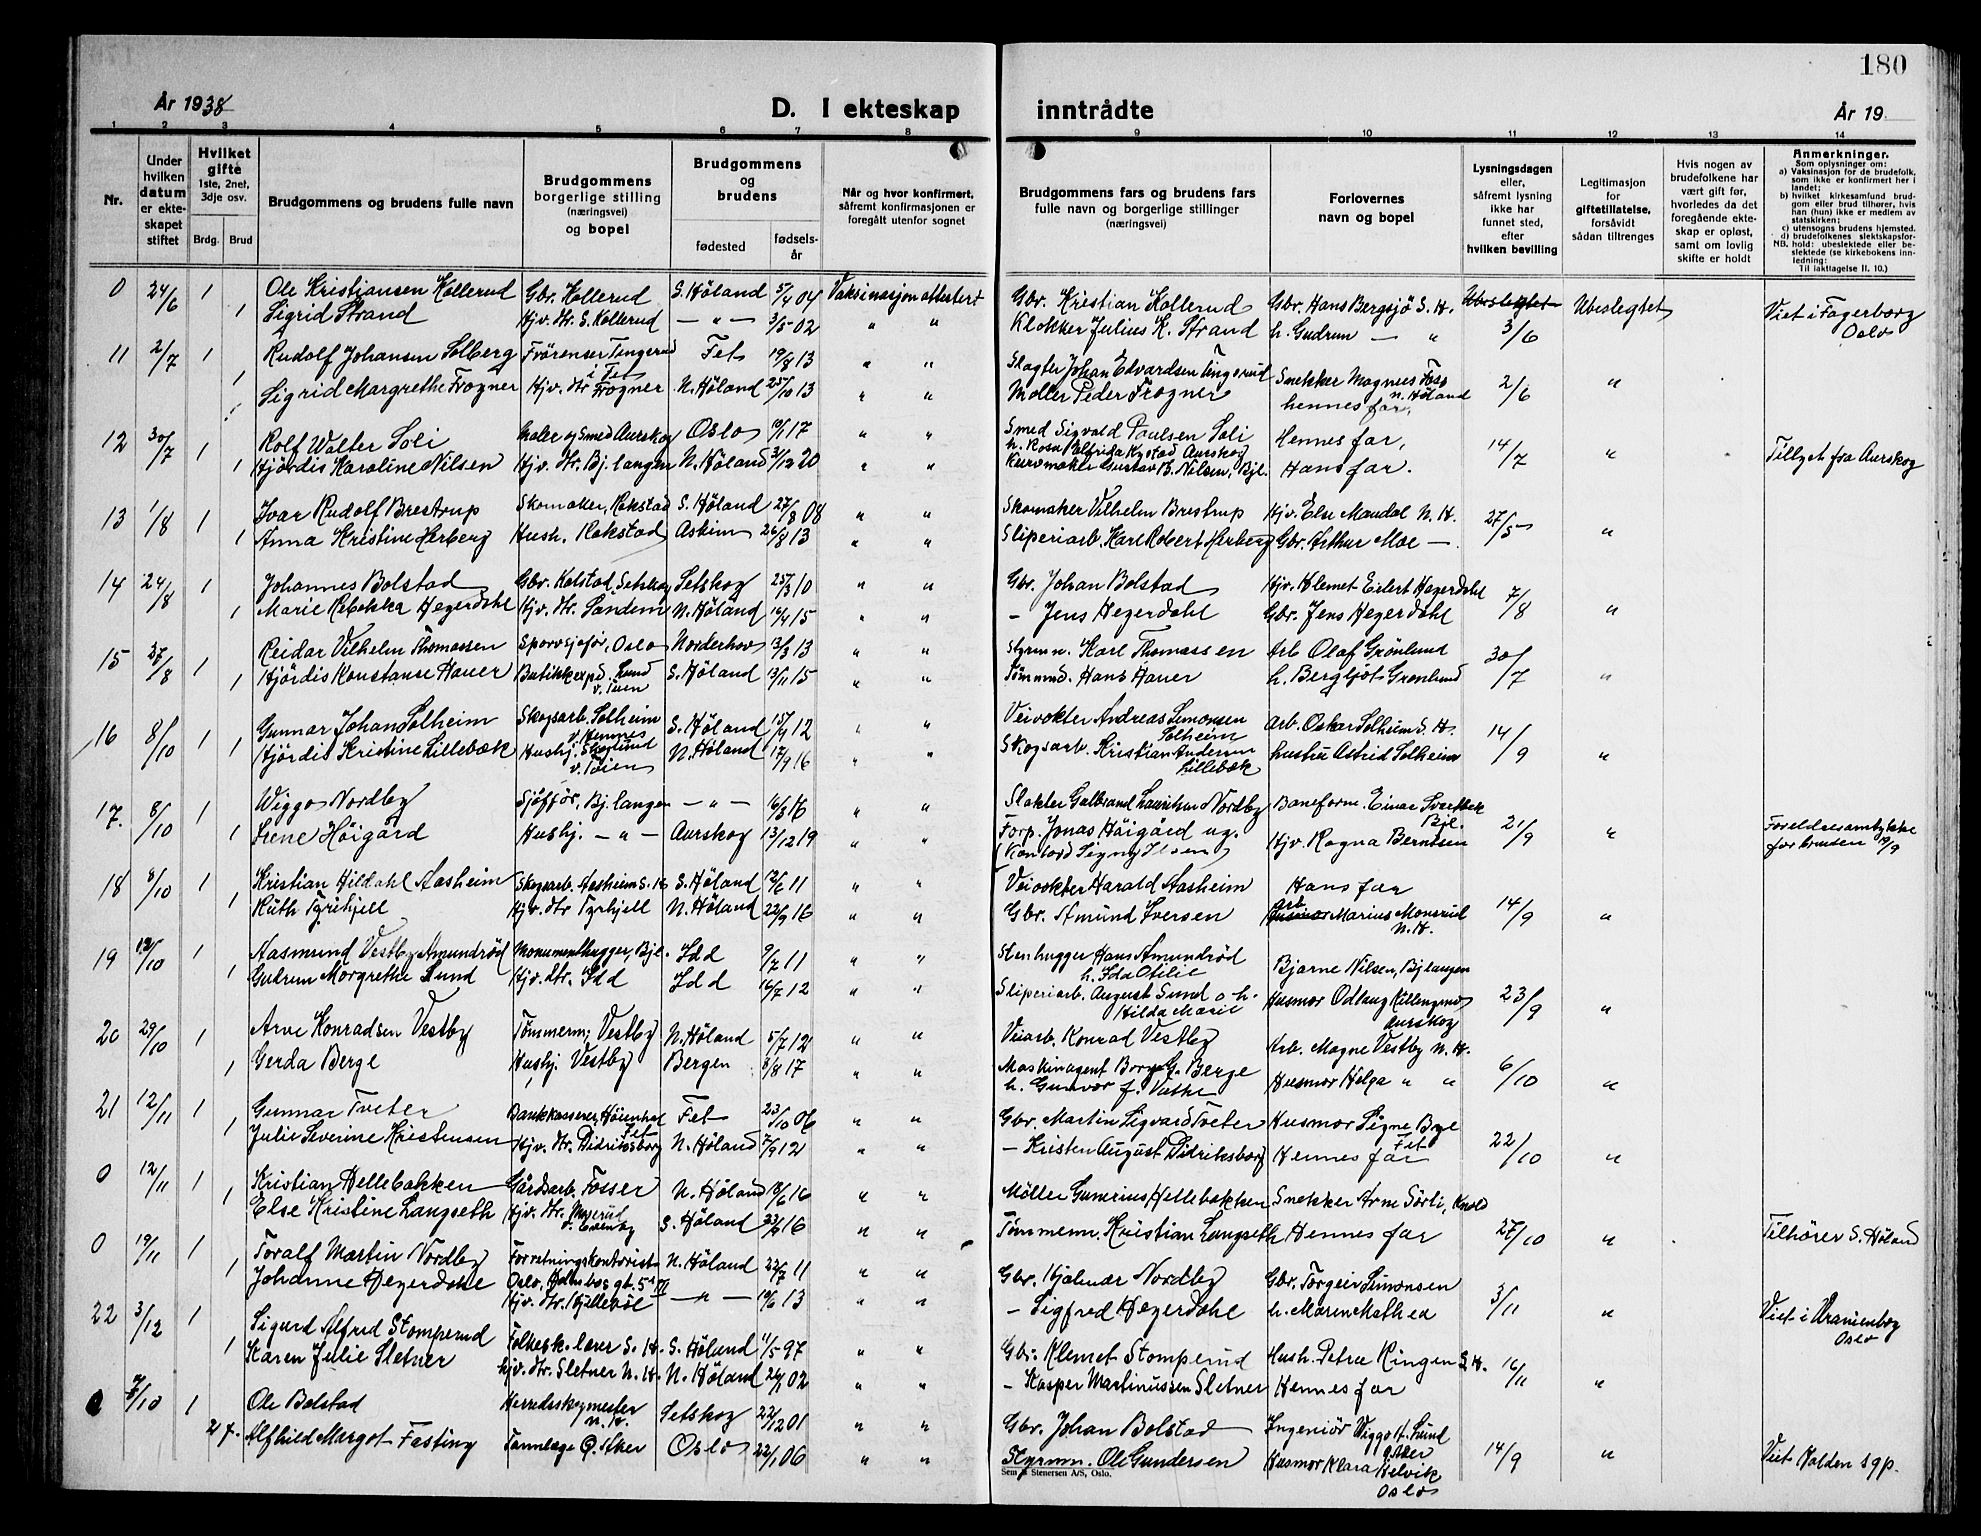 180
År 1938
D. I ekteskap inntrådte
År 19
1 2 3 4 5 6 7 8 9 10 11 12 13 14
Nr.
Under hvilken datum er ekteskapet stiftet
Hvilket gifte 1ste, 2net, 3dje osv.
Brdg. Brud
Brudgommens og brudens fulle navn
Brudgommens borgerlige stilling (næringsvei) og bopel
Brudgommens og brudens
fødested
fødselsår
Når og hvor konfirmert, såfremt konfirmasjonen er foregått utenfor sognet
Brudgommens fars og brudens fars fulle navn og borgerlige stillinger (næringsvei)
Forlovernes navn og bopel
Lysningsdagen eller, såfremt lysning ikke har funnet sted, efter hvilken bevilling
Legitimasjon for giftetillatelse, forsåvidt sådan tiltrenges
Hvis nogen av brudefolkene har vært gift før, hvorledes da det foregående ekteskap er opløst, samt om lovlig skifte er holdt
Anmerkninger.
Som oplysninger om:
a) Vaksinasjon for de brudefolk, som ikke er konfirmert her i landet;
b) hvilket kirkesamfund brudgom eller brud tilhører, hvis han (hun) ikke er medlem av statskirken;
c) utensogns brudens hjemsted.
d) brudefolkenes slektskapsforhold: ubeslektede eller beslektede (se kirkebokens innledning:
NB.
Til iakttagelse II. 10.)
0 24/6 1 Ole Kristiansen Kollerud Gbr. Kollerud S. Höland 5/4 04 Vaksinasjon attestert Gbr. Kristian Kollerud Gbr. Hans Bergsjö S. H. Ubeslegtet Ubeslegtet Viet i Fagerborg Oslo
1 Sigrid Strand Hjv. dtr. S. Kollerud — " — 3/5 02 " " Klokker Julius K. Strand h. Gudrun — " 3/6
11 2/7 1 Rudolf Johansen Solberg Tingerud i Fet Fet 19/8 13 " " Slagter Johan Edvardsen Snekker Magnus Foss N. Höland 2/6 "
1 Sigrid Margrethe Frogner Hjv. dtr Frogner N. Höland 25/10 13 " " Møller Peder Frogner hennes far,
12 30/7 1 Rolf Walter Soli Maler og Smed Aurskog Oslo 19/1 17 " " Smed Sigvald Paulsen Soli Hennes far, 14/7 " Tillyst fra Aurskog
h. Rosa Aurskog
1 Hjördis Karoline Nilsen Hjv. dtr. Bj.langen N. Höland 3/12 20 " " Kurvmaker Gustav B. Nilsen, Bjl. Hans far.
13 1/8 1 Ivar Rudolf Brestrup Skomaker, Rakstad S. Höland 27/8 08 " " Skomaker Vilhelm Brestrup Hjv. Else Mandal N. H. 27/5 "
1 Anna Kristine Herberg Hush. Rakstad Askim 26/8 13 " " Sliperiarb. Karl Robert Herberg Gbr. Arthur Moe —
14 24/8 1 Johannes Bolstad Gbr. Kolstad, Setskog Setskog 25/3 10 " " Gbr. Johan Bolstad Hjv. Klemet Eilert Hegerdahl 7/8 "
1 Marie Rebekka Hegerdahl Hjv. dtr. Sandem N. Höland 14/4 15 " " – Jens Hegerdahl Gbr. Jens Hegerdahl
15 27/8 1 Reidar Vilhelm Thomassen Sporvsjåför, Oslo Norderhov 13/3 13 " " Styrm. Karl Thomassen Arb. Olaf Grønlund 30/7 "
1 Hjördis Konstanse Hauer Butikkexp. Lund S. Höland 13/11 15 " " Tömmerm. Hans Hauer h. Bergljot Grønlund
16 8/10 1 Gunnar Johan Solheim Skogsarb. Solheim v. Hemnes S. Höland 15/9 12 " " Veivokter Andreas Simonsen Solheim Arb. Oskar Solheim S. H. 14/9 "
1 Hjördis Kristine Lillebæk Hushj. Skoglund v. Töien N. Höland 17/9 16 " " Skogsarb. Kristian Andersen Lillebæk hustru Astrid Solheim
17. 8/10 1 Wiggo Nordby Sjåfför, Bj.langen — " — 16/3 16 " " Slakter Gulbrand Lauritsen Nordby Baneform. Einar Svartbæk Bjl. 21/9 " Foreldresamtykke for bruden 19/9
1 Irene Höigård Hushj. — " — Aurskog 13/12 19 " " Forp. Jonas Höigård ug. Hjv. Ragna Berntsen
(Kontord Signy Olsen)
18 8/10 1 Kristian Hildahl Aasheim Skogsarb. Aasheim S. H. S. Höland 12/6 11 " " Veivokter Harald Aasheim Hans far 14/9 "
1 Ruth Tyrihjell Hjv. dtr Tyrhjell N. Höland 22/9 16 " " Gbr. Amund Iversen Arb. Marius Monsrud N. H.
19 19/10 1 Aasmund Vestby Amundröd Monumenthugger, Bjl. Idd 9/7 11 " " Stenhugger Hans Amundröd Bjarne Nilsen, Bjlangen 23/9 "
h. Ida Otilie
1 Gudrun Margrethe Sund Hjv. dtr. Idd Idd 16/7 12 " " Sliperiarb. August Sund o. h. Hilda Marie Husmor Odlaug Killingmo Aurskog
20 29/10 1 Arve Konradsen Vestby Tömmerm; Vestby N. Höland 5/7 12 " " Veiarb. Konrad Vestby Arb. Magne Vestby N. H. 6/10 "
1 Gerda Berge Hushj. Vestby Bergen 8/8 17 " " Maskinagent Borge G. Berge Husmor Helga " "
h. Gunvor f. Vathe
21 12/11 1 Gunnar Tveter Bankkasserer, Höienhal Fet Fet 23/10 06 " " Gbr. Martin Sigvard Tveter Husmor Signe Bye Fet 22/10 "
1 Julie Severine Kristensen Hjv. dtr. Didriksborg N. Höland 7/9 12 " " – Kristen August Didriksborg Hennes far
0 12/11 1 Kristian Hellebakken Gårdsarb. Fosser N. Höland 18/6 16 " " Möller Gunerius Hellebakken Snekker Arne Sörli, 27/10 " Tilhører S. Höland
1 Else Kristine Langseth Hjv. dtr. Myrerud S. Höland 23/6 16 " " Tömmerm. Kristian Langseth Hennes far
0 19/11 1 Toralf Martin Nordby Forretningskontorist Oslo, N. Höland 22/7 11 " " Gbr. Hjalmar Nordby Gbr. Torgeir Simonsen 3/11 " Viet i Uranienborg Oslo
1 Johanne Hegerdahl Hjv. dtr. Kjellevöl — " — 19/6 13 " " – Sigfred Hegerdahl h. Maren Mathea
22 3/12 1 Sigurd Alfred Stomperud Folkesk. lærer S. H. S. Höland 11/5 97 " " Gbr. Klemet Stomperud Hush. Petra Ringen S. H. 16/11 "
1 Karen Julie Sletner hjv. dtr. Sletner N. H. N. Höland 24/1 02 " " – Kasper Martinussen Sletner Hennes far
8/10 1 Ole Bolstad Herredsskogmester N. H. Setskog 22/12 01 " " Gbr. Johan Bolstad Ingeniör Viggo H. Lund Ö. Aker 14/9 " Viet Halden sgp.
2 Alfhild Margot Festing Tannlæge Ö. Aker Oslo 22/1 06 " " Styrmn. Ole Gundersen Husmor Klara Helvik Oslo
Sem & Stenersen A/S, Oslo.